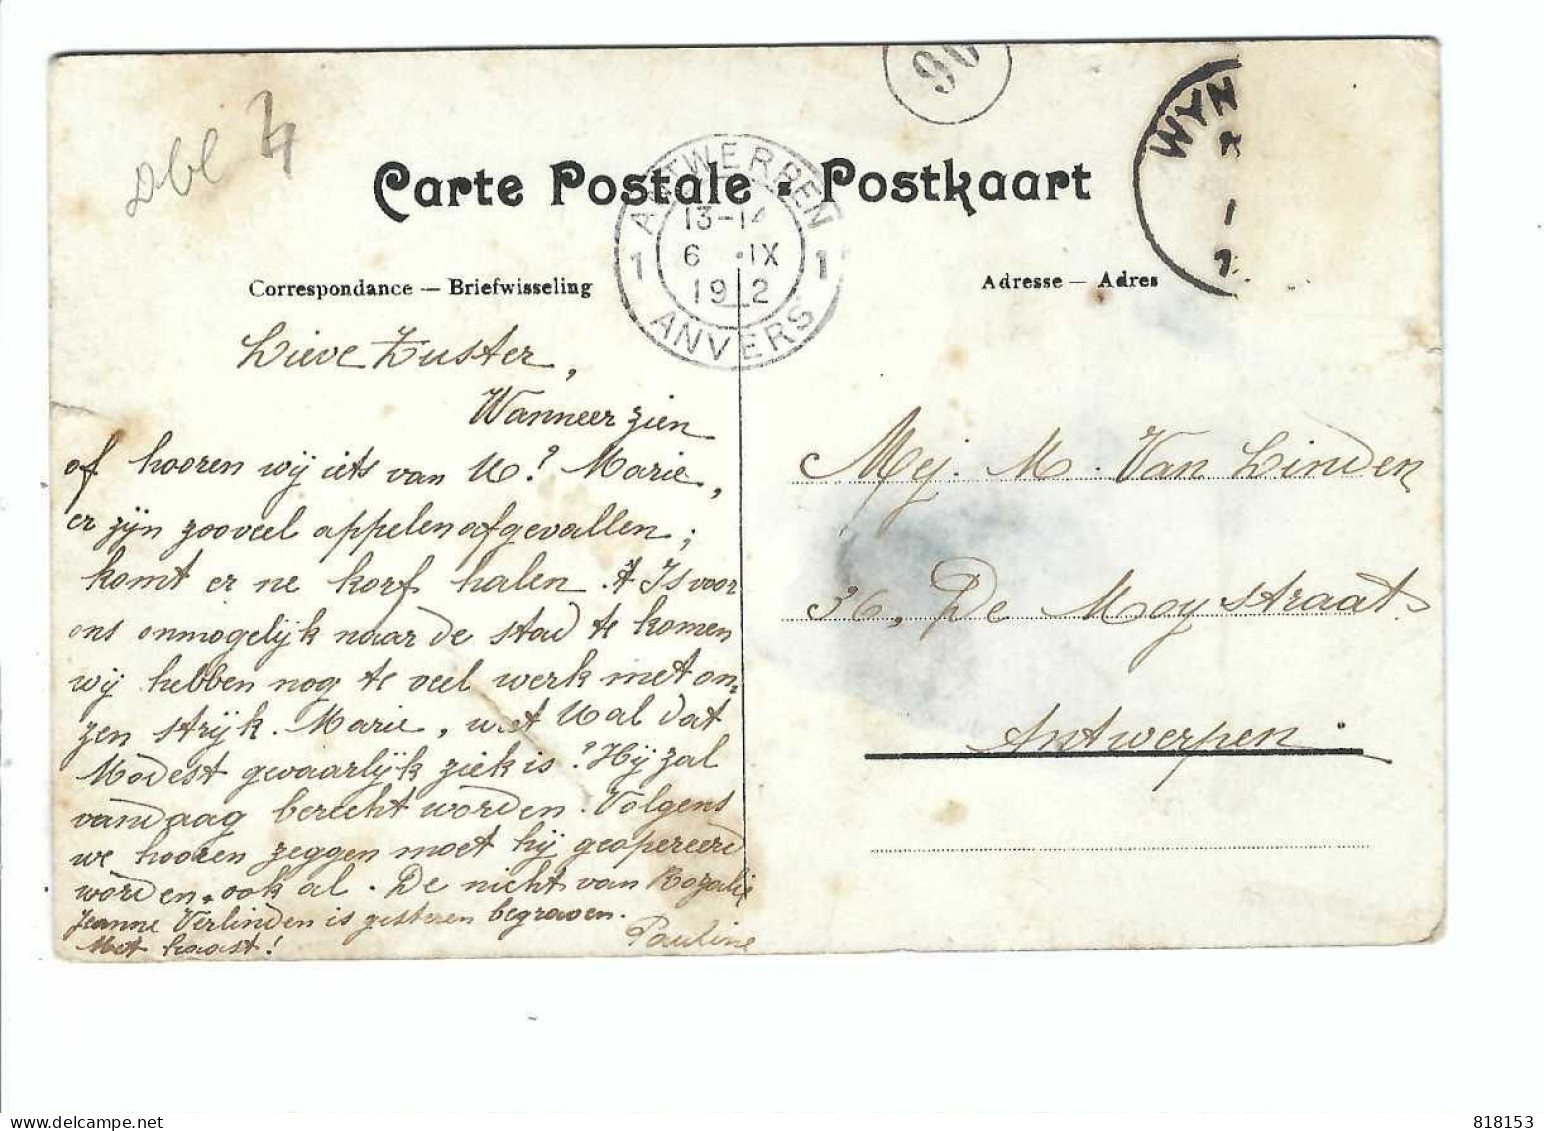 Dbl 4
90
WYN
Carte Postale - Postkaart
ANTWERPEN
13-14
1 6 IX 1
19 12
ANVERS
Correspondance — Briefwisseling
Adresse — Adres
Lieve Zuster,
Wanneer zien
of hooren wij iets van U? Marie,
er zijn zooveel appelen afgevallen;
komt er ne korf halen. 't Is voor
ons onmogelijk naar de stad te komen
wij hebben nog te veel werk met on=
zen strijk. Marie, weet U al dat
Modest gevaarlijk ziek is? Hij zal
vandaag berecht worden. Volgens
we hooren zeggen moet hij geopereerd
worden, ook al. De nicht van Rozalie
Jeanne Verlinden is gisteren begraven.
Met haast! Pauline
Mej. M. Van Linden
36, De Moy straat
Antwerpen.
delcampe.net
818153